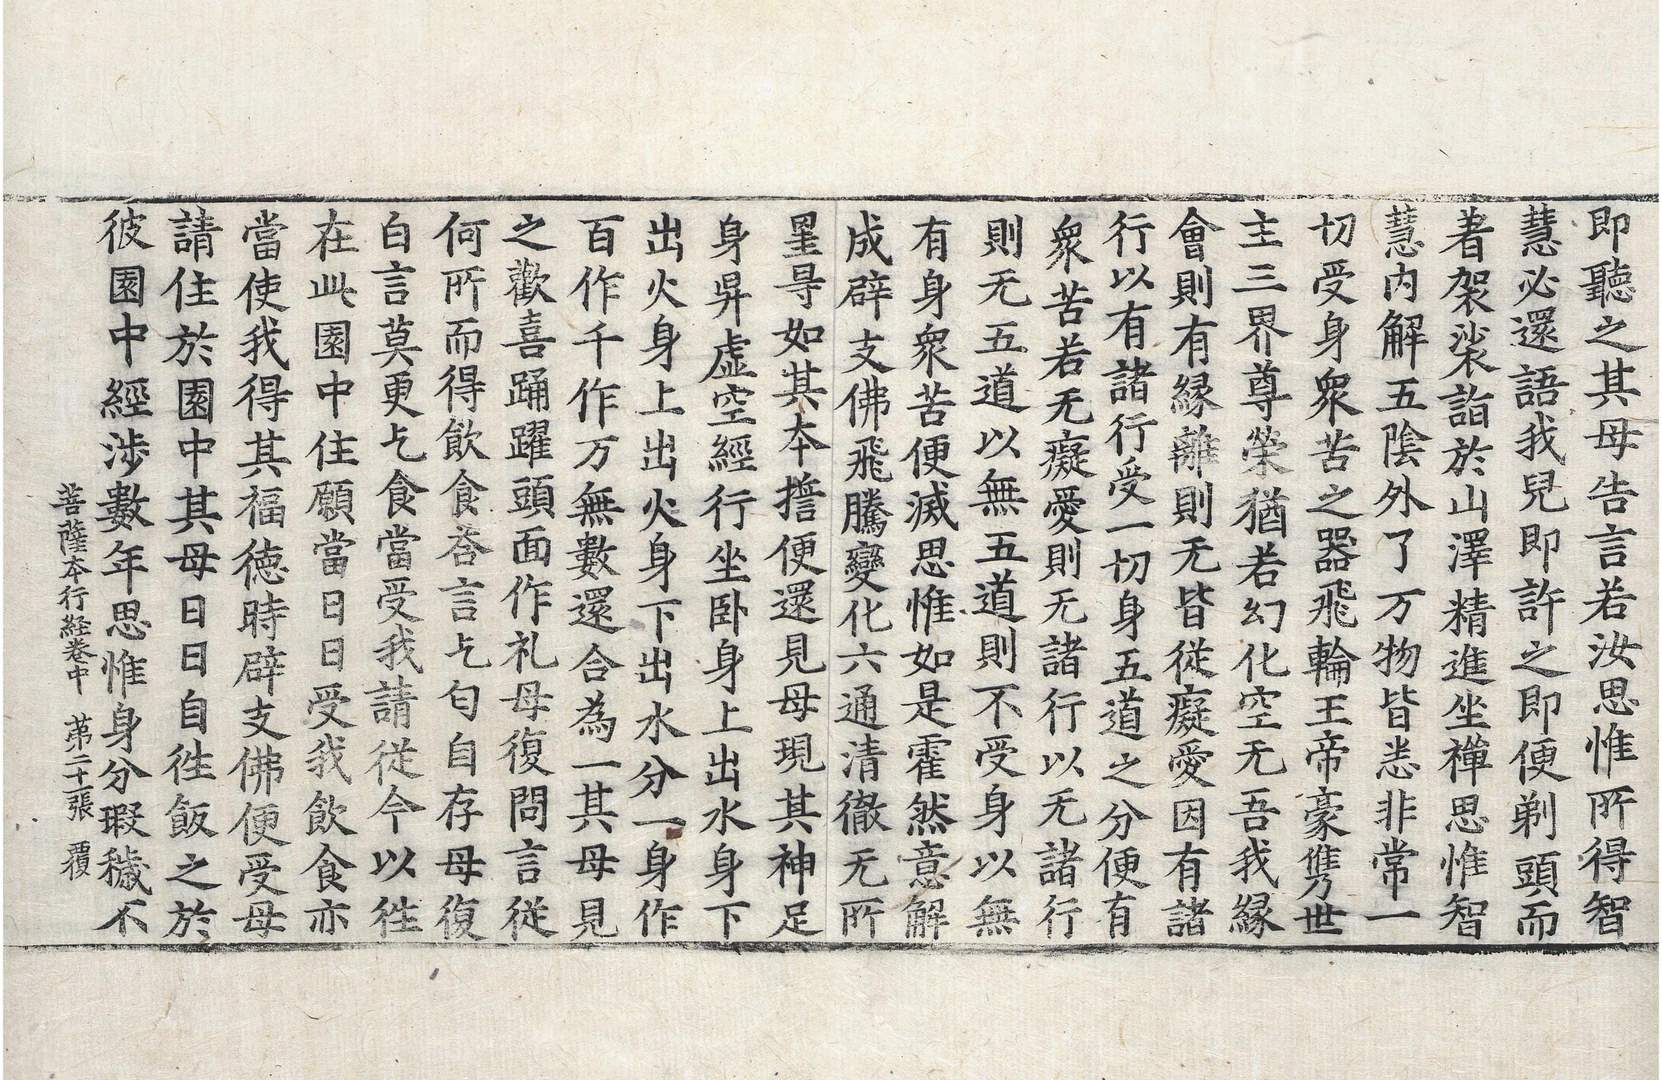 即聽之其母告言若汝思惟所得智
慧必還語我兒即許之即便剃頭而
著袈裟詣於山澤精進坐禪思惟智
慧內解五陰外了万物皆悉非常一
切受身衆苦之器飛輪王帝豪儁世
主三界尊榮猶若幻化空无吾我縁
會則有縁離則无皆従癡愛因有諸
行以有諸行受一切身五道之分便有
衆苦若无癡愛則无諸行以无諸行
則无五道以無五道則不受身以無
有身衆苦便滅思惟如是霍然意解
成辟支佛飛騰變化六通清徹无所
罣㝵如其本擔便還見母現其神足
身昇虛空經行坐臥身上出水身下
出火身上出火身下出水分一身作
百作千作万無數還合為一其母見
之歡喜踊躍頭面作礼母復問言従
何所而得飲食荅言乞匃自存母復
白言莫更乞食當受我請従今以徃
在此園中住願當日日受我飲食亦
當使我得其福德時辟支佛便受母
請住於園中其母日日自徃飯之於
彼園中經涉數年思惟身分瑕穢不
菩薩本行経卷中　苐二十一張　覆